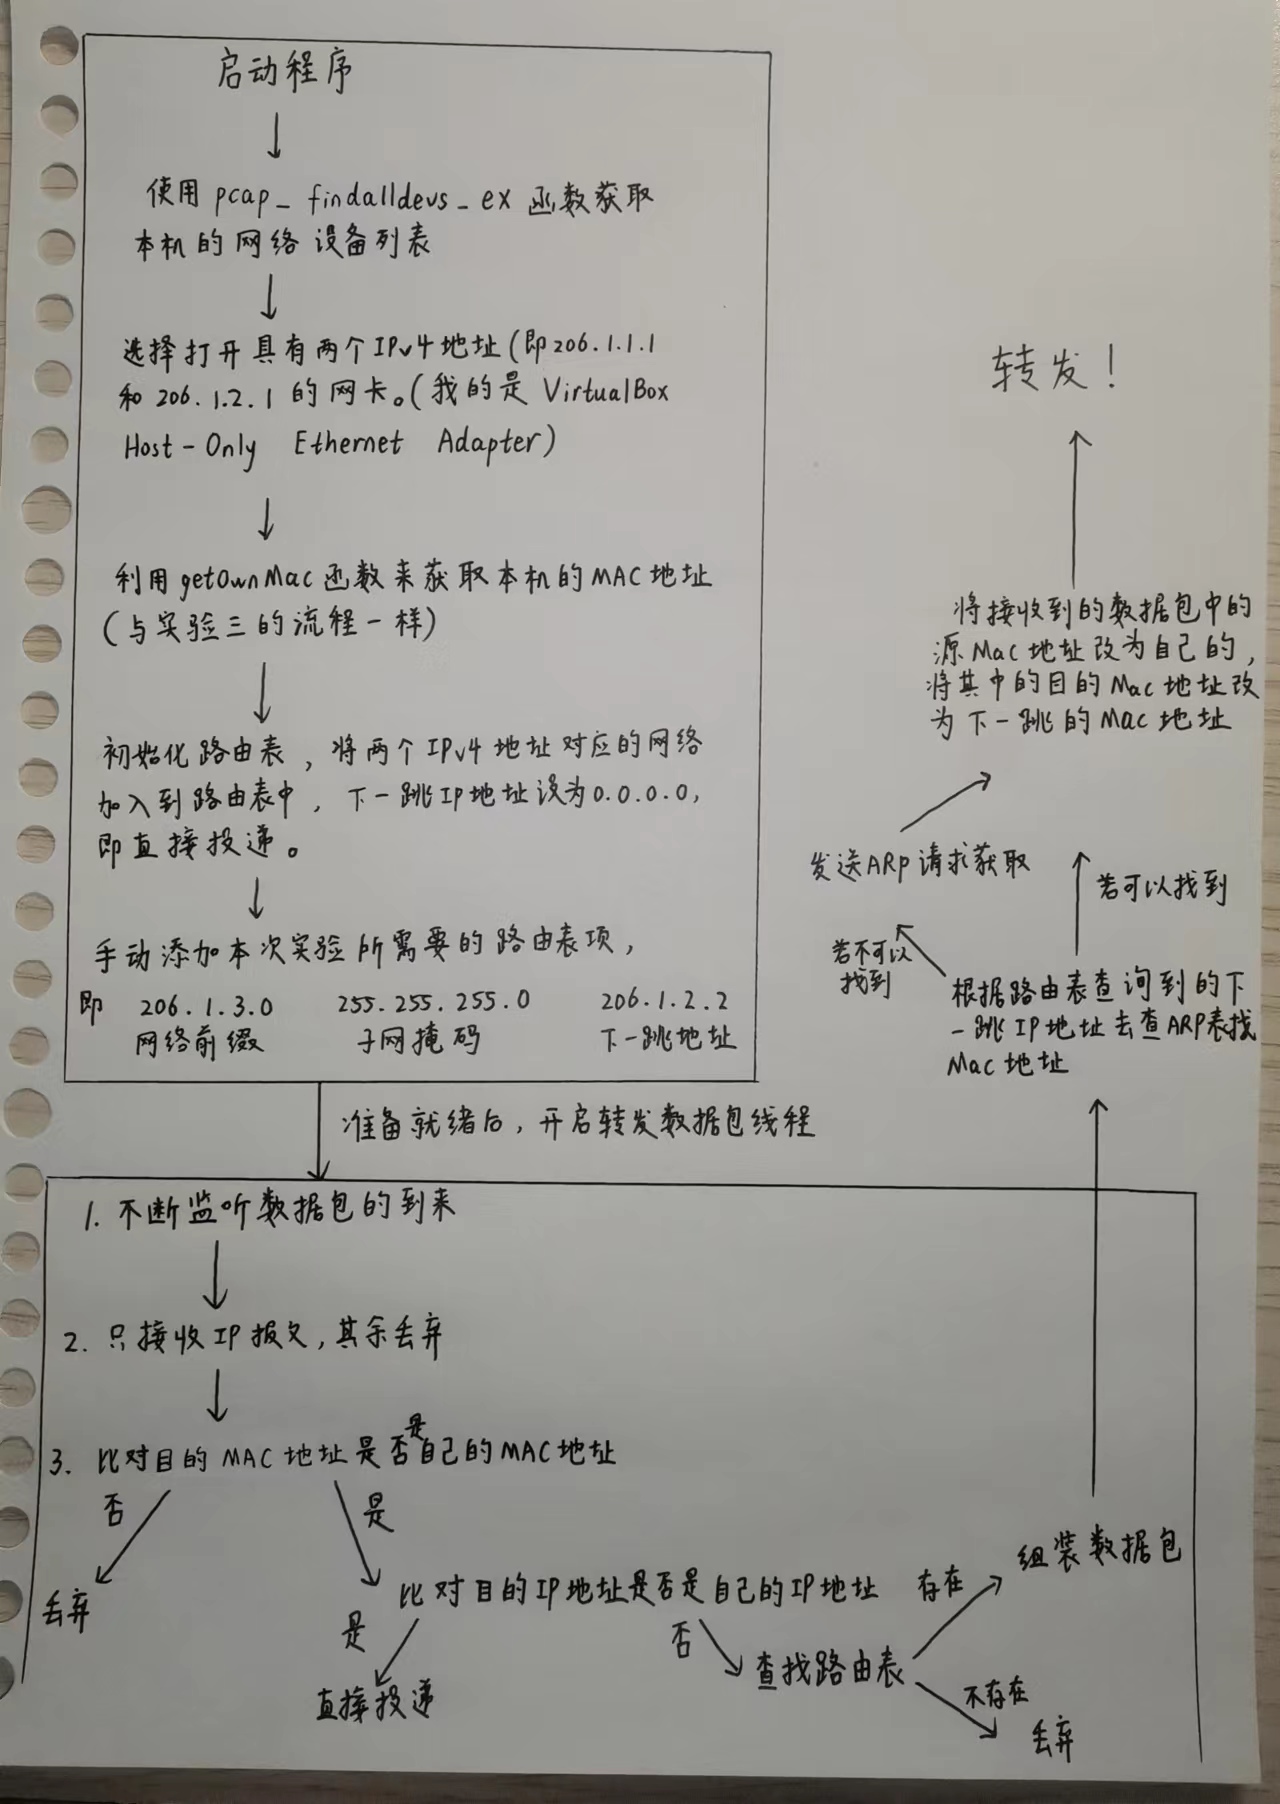 启动程序
使用pcap_findalldevs_ex函数获取
本机的网络设备列表
选择打开具有两个IPv4地址(即206.1.1.1
和206.1.2.1的网卡。(我的是VirtualBox
Host-Only Ethernet Adapter)
利用getOwnMac函数来获取本机的MAC地址
(与实验三的流程一样)
初始化路由表,将两个IPv4地址对应的网络
加入到路由表中,下一跳IP地址设为0.0.0.0,
即直接投递。
手动添加本次实验所需要的路由表项,
即 206.1.3.0 255.255.255.0 206.1.2.2
网络前缀 子网掩码 下一跳地址
准备就绪后,开启转发数据包线程
1. 不断监听数据包的到来
2. 只接收IP报文,其余丢弃
3. 比对目的MAC地址是否是自己的MAC地址
否
是
丢弃
比对目的IP地址是否是自己的IP地址
是
否
直接投递
查找路由表
存在
不存在
丢弃
组装数据包
根据路由表查询到的下
一跳IP地址去查ARP表找
Mac地址
若不可以
找到
若可以找到
发送ARP请求获取
将接收到的数据包中的
源Mac地址改为自己的,
将其中的目的Mac地址改
为下一跳的Mac地址
转发!